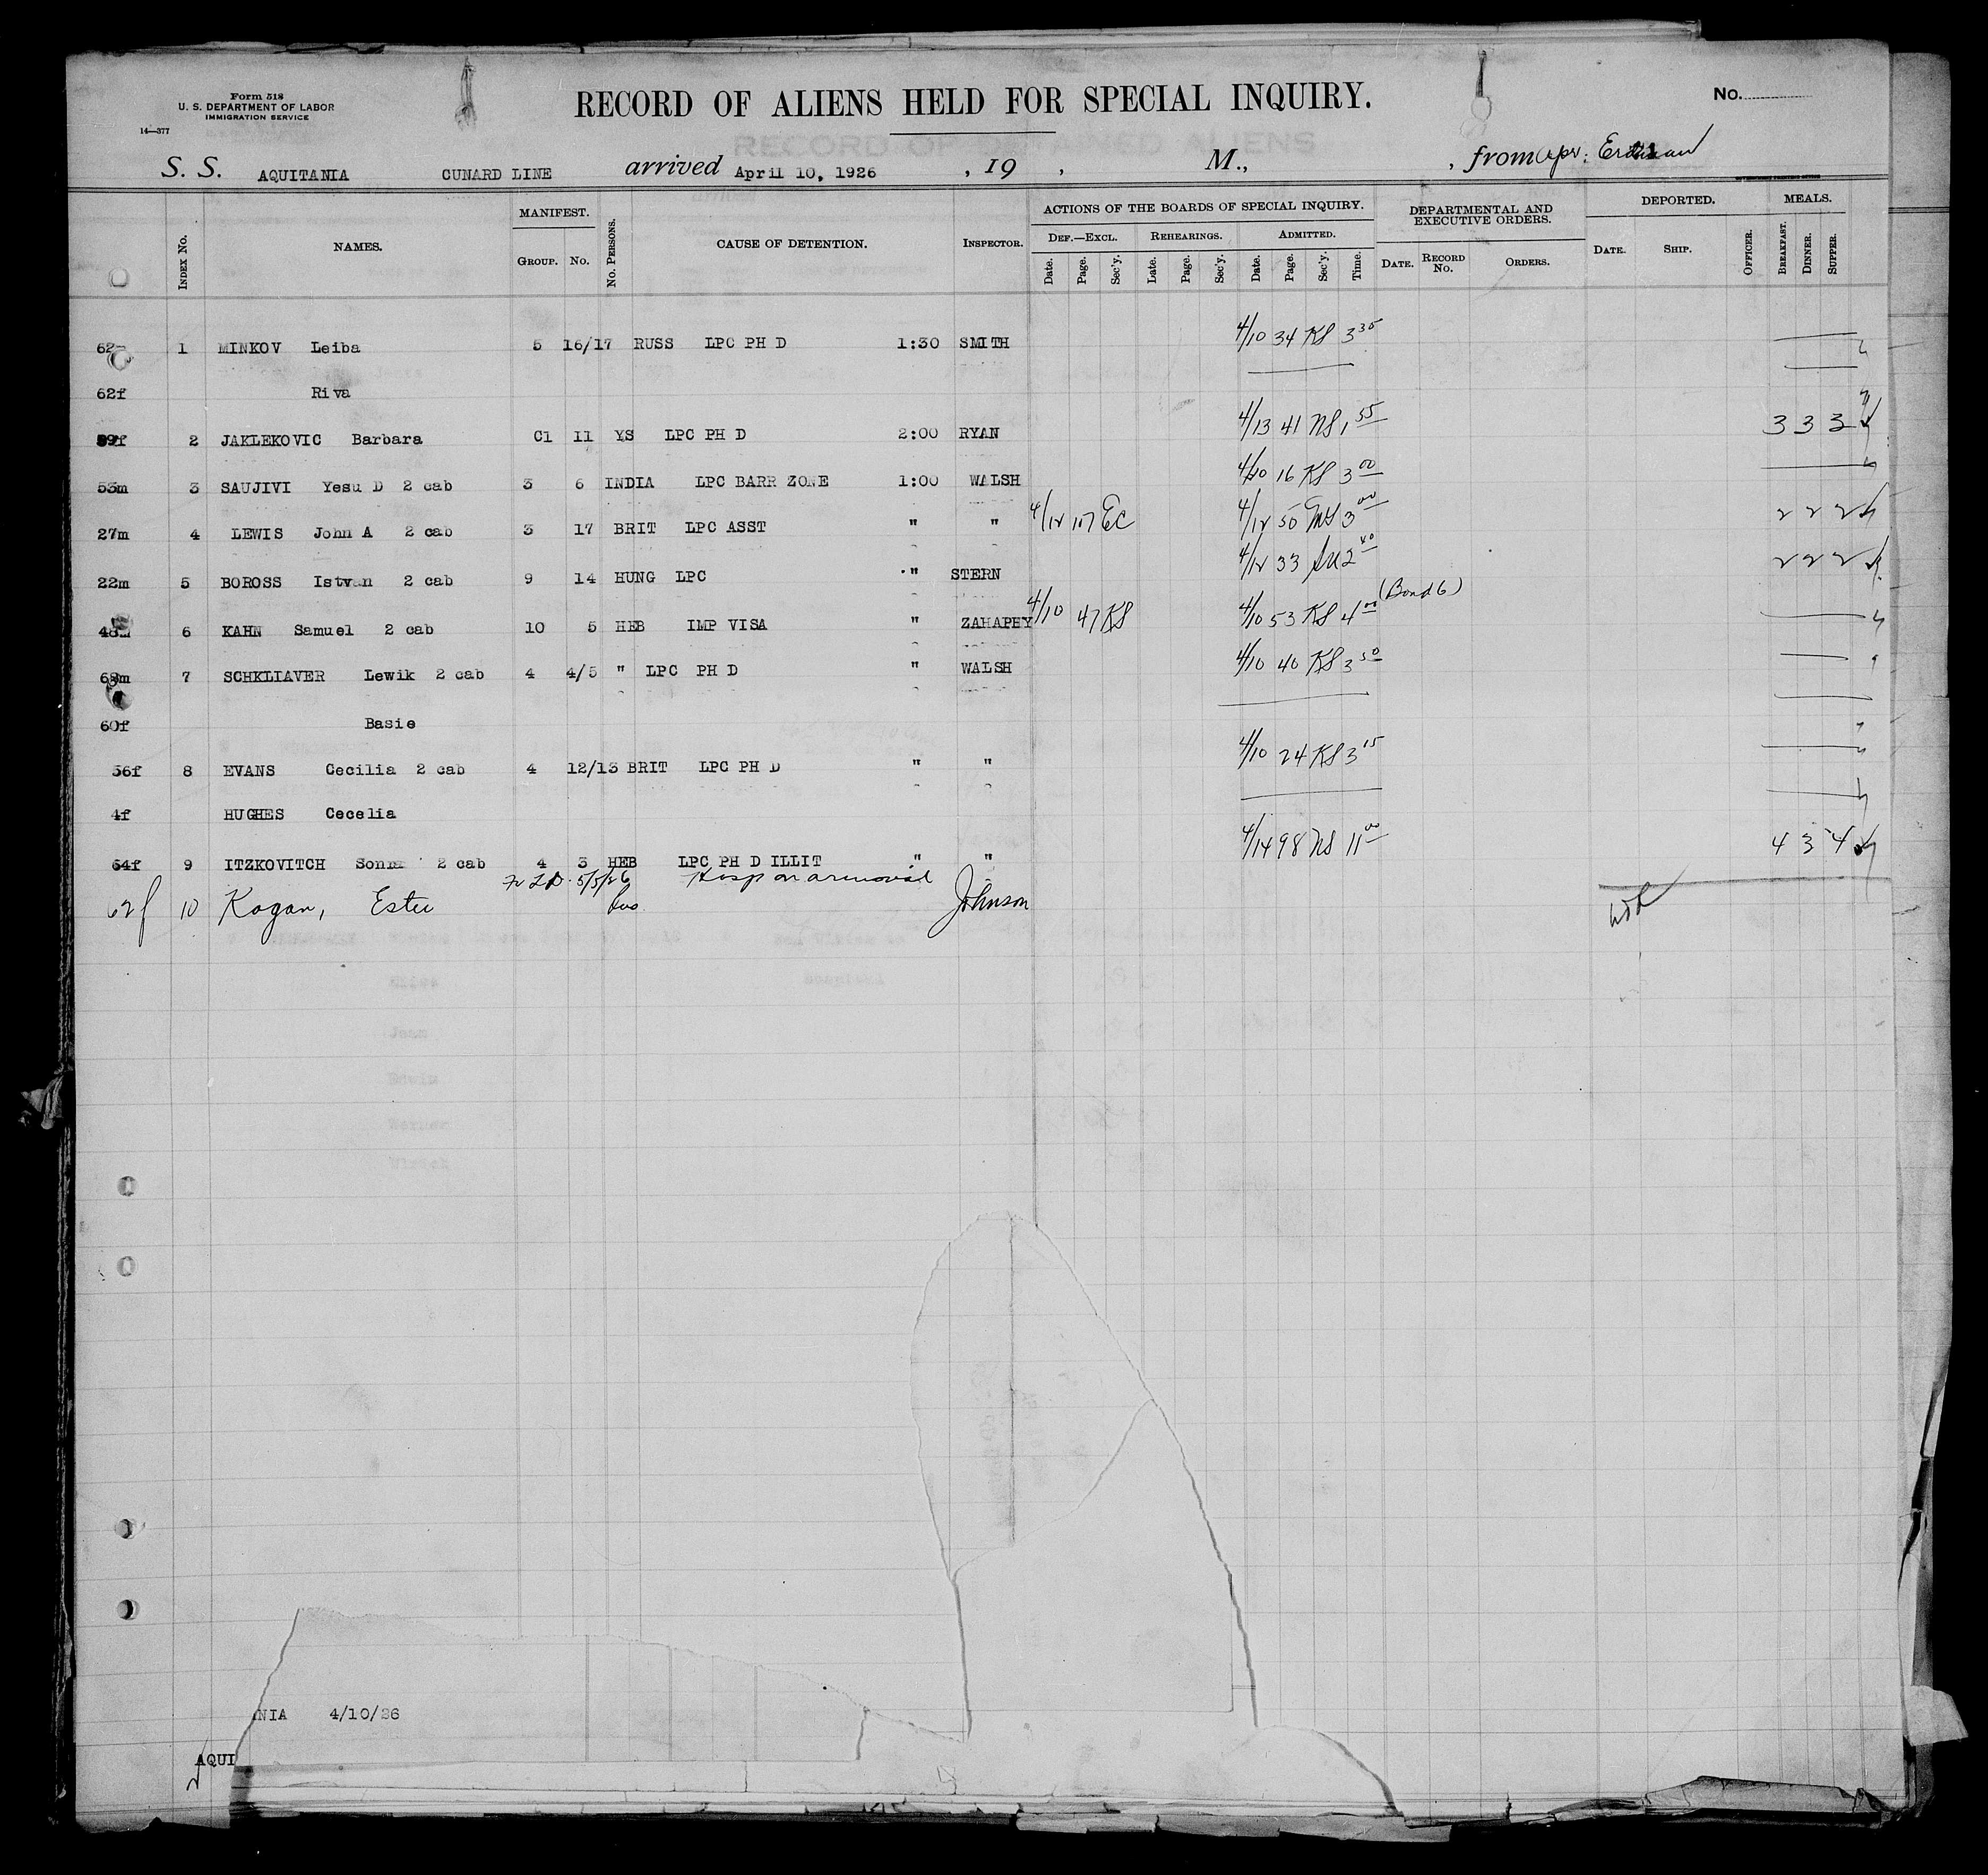 Form 518
U. S. DEPARTMENT OF LABOR
IMMIGRATION SERVICE
14—377
RECORD OF ALIENS HELD FOR SPECIAL INQUIRY.
No.
S. S. AQUITANIA CUNARD LINE arrived April 10, 1926 , 19 , M., , from
INDEX No. NAMES. MANIFEST. GROUP. No. No. PERSONS. CAUSE OF DETENTION. INSPECTOR. ACTIONS OF THE BOARDS OF SPECIAL INQUIRY. DEF.—EXCL. Date. Page. Sec'y. REHEARINGS. Date. Page. Sec'y. ADMITTED. Date. Page. Sec'y. Time. DEPARTMENTAL AND EXECUTIVE ORDERS. DATE. RECORD No. ORDERS. DEPORTED. DATE. SHIP. OFFICER. MEALS. BREAKFAST. DINNER. SUPPER.
1 MINKOV Leiba 5 16/17 RUSS LPC PH D 1:30 SMITH 4/10 34 KS 3 35
62f Riva
2 JAKLEKOVIC Barbara C1 11 YS LPC PH D 2:00 RYAN 4/13 41 NS 1 55 3 3 3
53m 3 SAUJIVI Yesu D 2 cab 3 6 INDIA LPC BARR ZONE 1:00 WALSH 4/10 16 KS 3 00
27m 4 LEWIS John A 2 cab 3 17 BRIT LPC ASST " " 4/12 107 EC 4/12 50 3 00 2 2 2
22m 5 BOROSS Istvan 2 cab 9 14 HUNG LPC " STERN 4/12 33 2 40 2 2 2
6 KAHN Samuel 2 cab 10 5 HEB IMP VISA " ZAHAPHY 4/10 47 KS 4/10 53 KS 4 00 (Bond 6)
68m 7 SCHKLIAVER Lewik 2 cab 4 4/5 " LPC PH D " WALSH 4/10 40 KS 3 50
60f Basie
56f 8 EVANS Cecilia 2 cab 4 12/13 BRIT LPC PH D " " 4/10 24 KS 3 15
4f HUGHES Cecelia
64f 9 ITZKOVITCH Sonia 2 cab 4 3 HEB LPC PH D ILLIT " " 4/14 98 NS 11 00 4 3 4
5/5/26 Hosp on arrival
62f 10 Kogan, Ester Johnson
NIA 4/10/26
AQUI